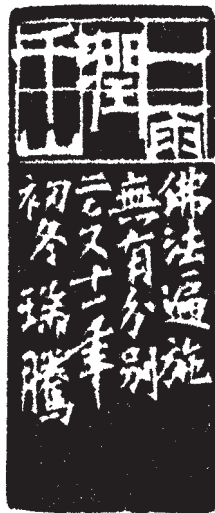 一雨
潤
千山
佛法遍施
無有分別
二〇又十一年
初冬瑞騰